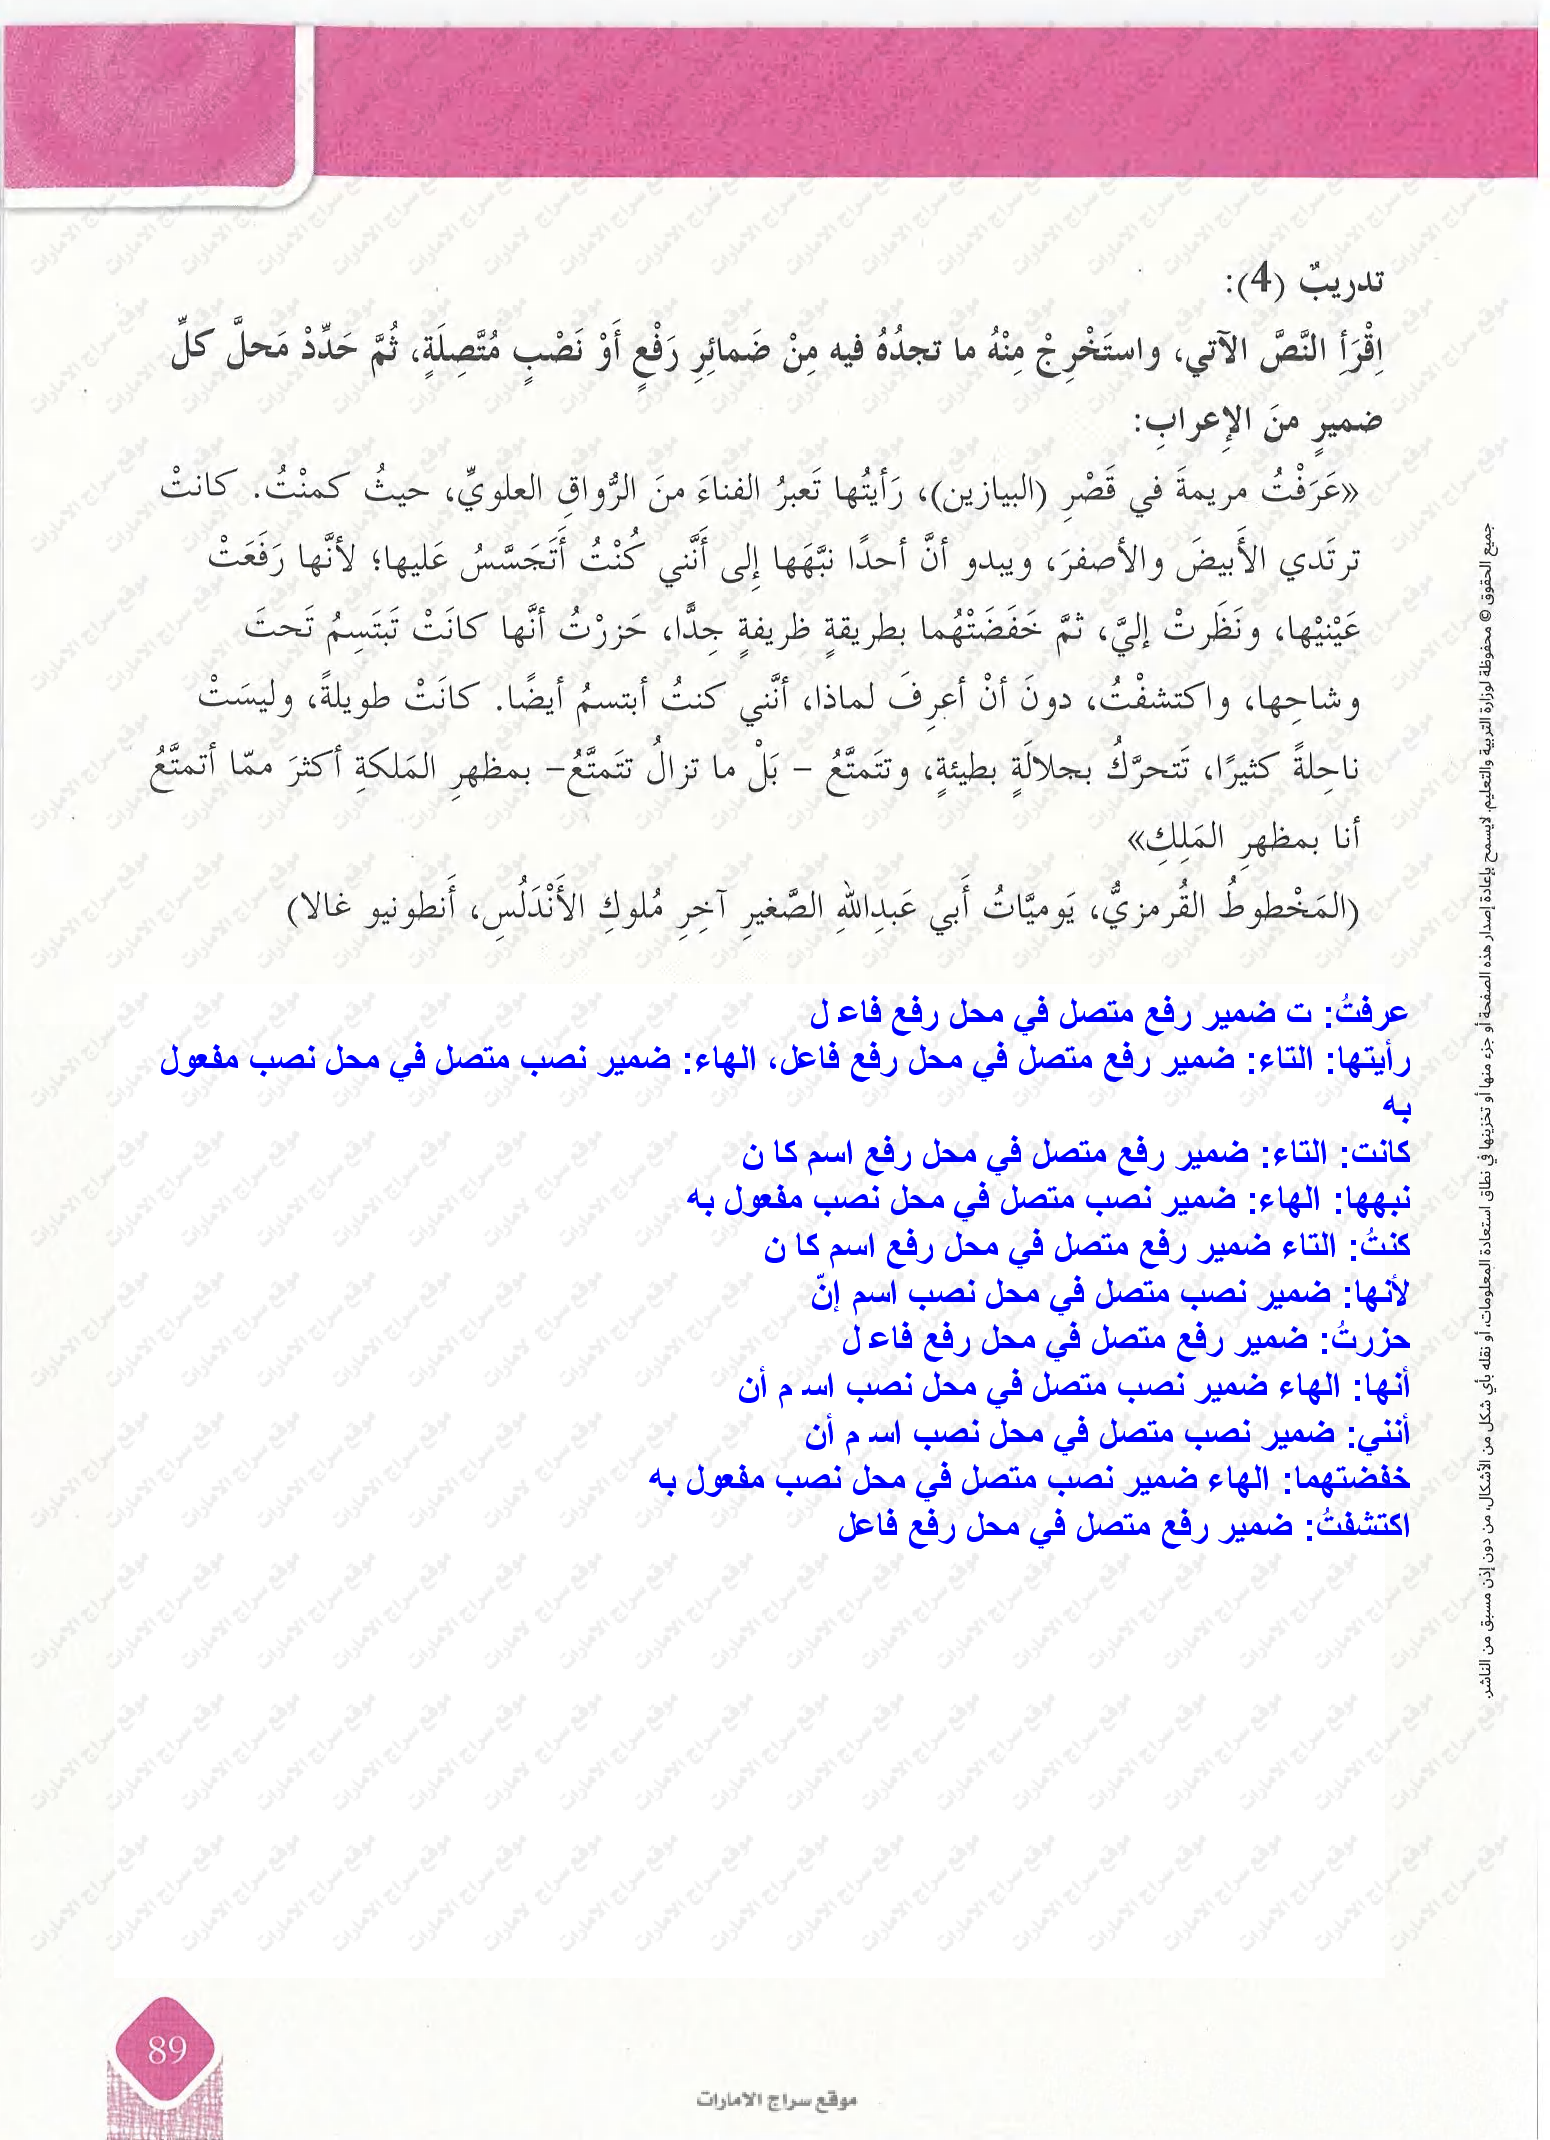 تدريبٌ (4):
اِقْرَأِ النَّصَّ الآتي، واستَخْرِجْ مِنْهُ ما تجدُهُ فيه مِنْ ضَمائِرِ رَفْعٍ أَوْ نَصْبٍ مُتَّصِلَةٍ، ثُمَّ حَدِّدْ مَحلَّ كلِّ
ضميرٍ منَ الإعرابِ:
«عَرَفْتُ مريمةَ في قَصْرِ (البيازين)، رَأيتُها تَعبرُ الفناءَ منَ الرُّواقِ العلويِّ، حيثُ كمنْتُ. كانتْ
ترتَدي الأَبيضَ والأصفرَ، ويبدو أنَّ أحدًا نبَّهَها إلى أنَّني كُنْتُ أتَجَسَّسُ عَليها؛ لأنَّها رَفَعَتْ
عَيْنيْها، ونَظَرتْ إليَّ، ثمَّ خَفَضَتْهُما بطريقةٍ ظريفةٍ جِدًّا، حَزرْتُ أنَّها كانَتْ تَبتَسِمُ تَحتَ
وشاحِها، واكتشفْتُ، دونَ أنْ أعرِفَ لماذا، أنَّني كنتُ أبتسمُ أيضًا. كانَتْ طويلةً، وليسَتْ
ناحِلةً كثيرًا، تَتحرَّكُ بجلالَةٍ بطيئةٍ، وتتَمتَّعُ – بَلْ ما تزالُ تتَمتَّعُ– بمظهرِ المَلكةِ أكثرَ ممّا أتمتَّعُ
أنا بمظهرِ المَلِكِ»
(المَخْطوطُ القُرمزيُّ، يَوميَّاتُ أَبي عَبدِاللهِ الصَّغيرِ آخِرِ مُلوكِ الأَنْدَلُسِ، أَنطونيو غالا)
عرفتُ: ت ضمير رفع متصل في محل رفع فاعل
رأيتها: التاء: ضمير رفع متصل في محل رفع فاعل، الهاء: ضمير نصب متصل في محل نصب مفعول
به
كانت: التاء: ضمير رفع متصل في محل رفع اسم كان
نبهها: الهاء: ضمير نصب متصل في محل نصب مفعول به
كنتُ: التاء ضمير رفع متصل في محل رفع اسم كان
لأنها: ضمير نصب متصل في محل نصب اسم إنّ
حزرتُ: ضمير رفع متصل في محل رفع فاعل
أنها: الهاء ضمير نصب متصل في محل نصب اسم أن
أنني: ضمير نصب متصل في محل نصب اسم أن
خفضتهما: الهاء ضمير نصب متصل في محل نصب مفعول به
اكتشفتُ: ضمير رفع متصل في محل رفع فاعل
جميع الحقوق © محفوظة لوزارة التربية والتعليم. لايسمح بإعادة إصدار هذه الصفحة أو جزء منها أو تخزينها في نطاق استعادة المعلومات، أو نقله بأي شكل من الأشكال، من دون إذن مسبق من الناشر.
89
موقع سراج الامارات